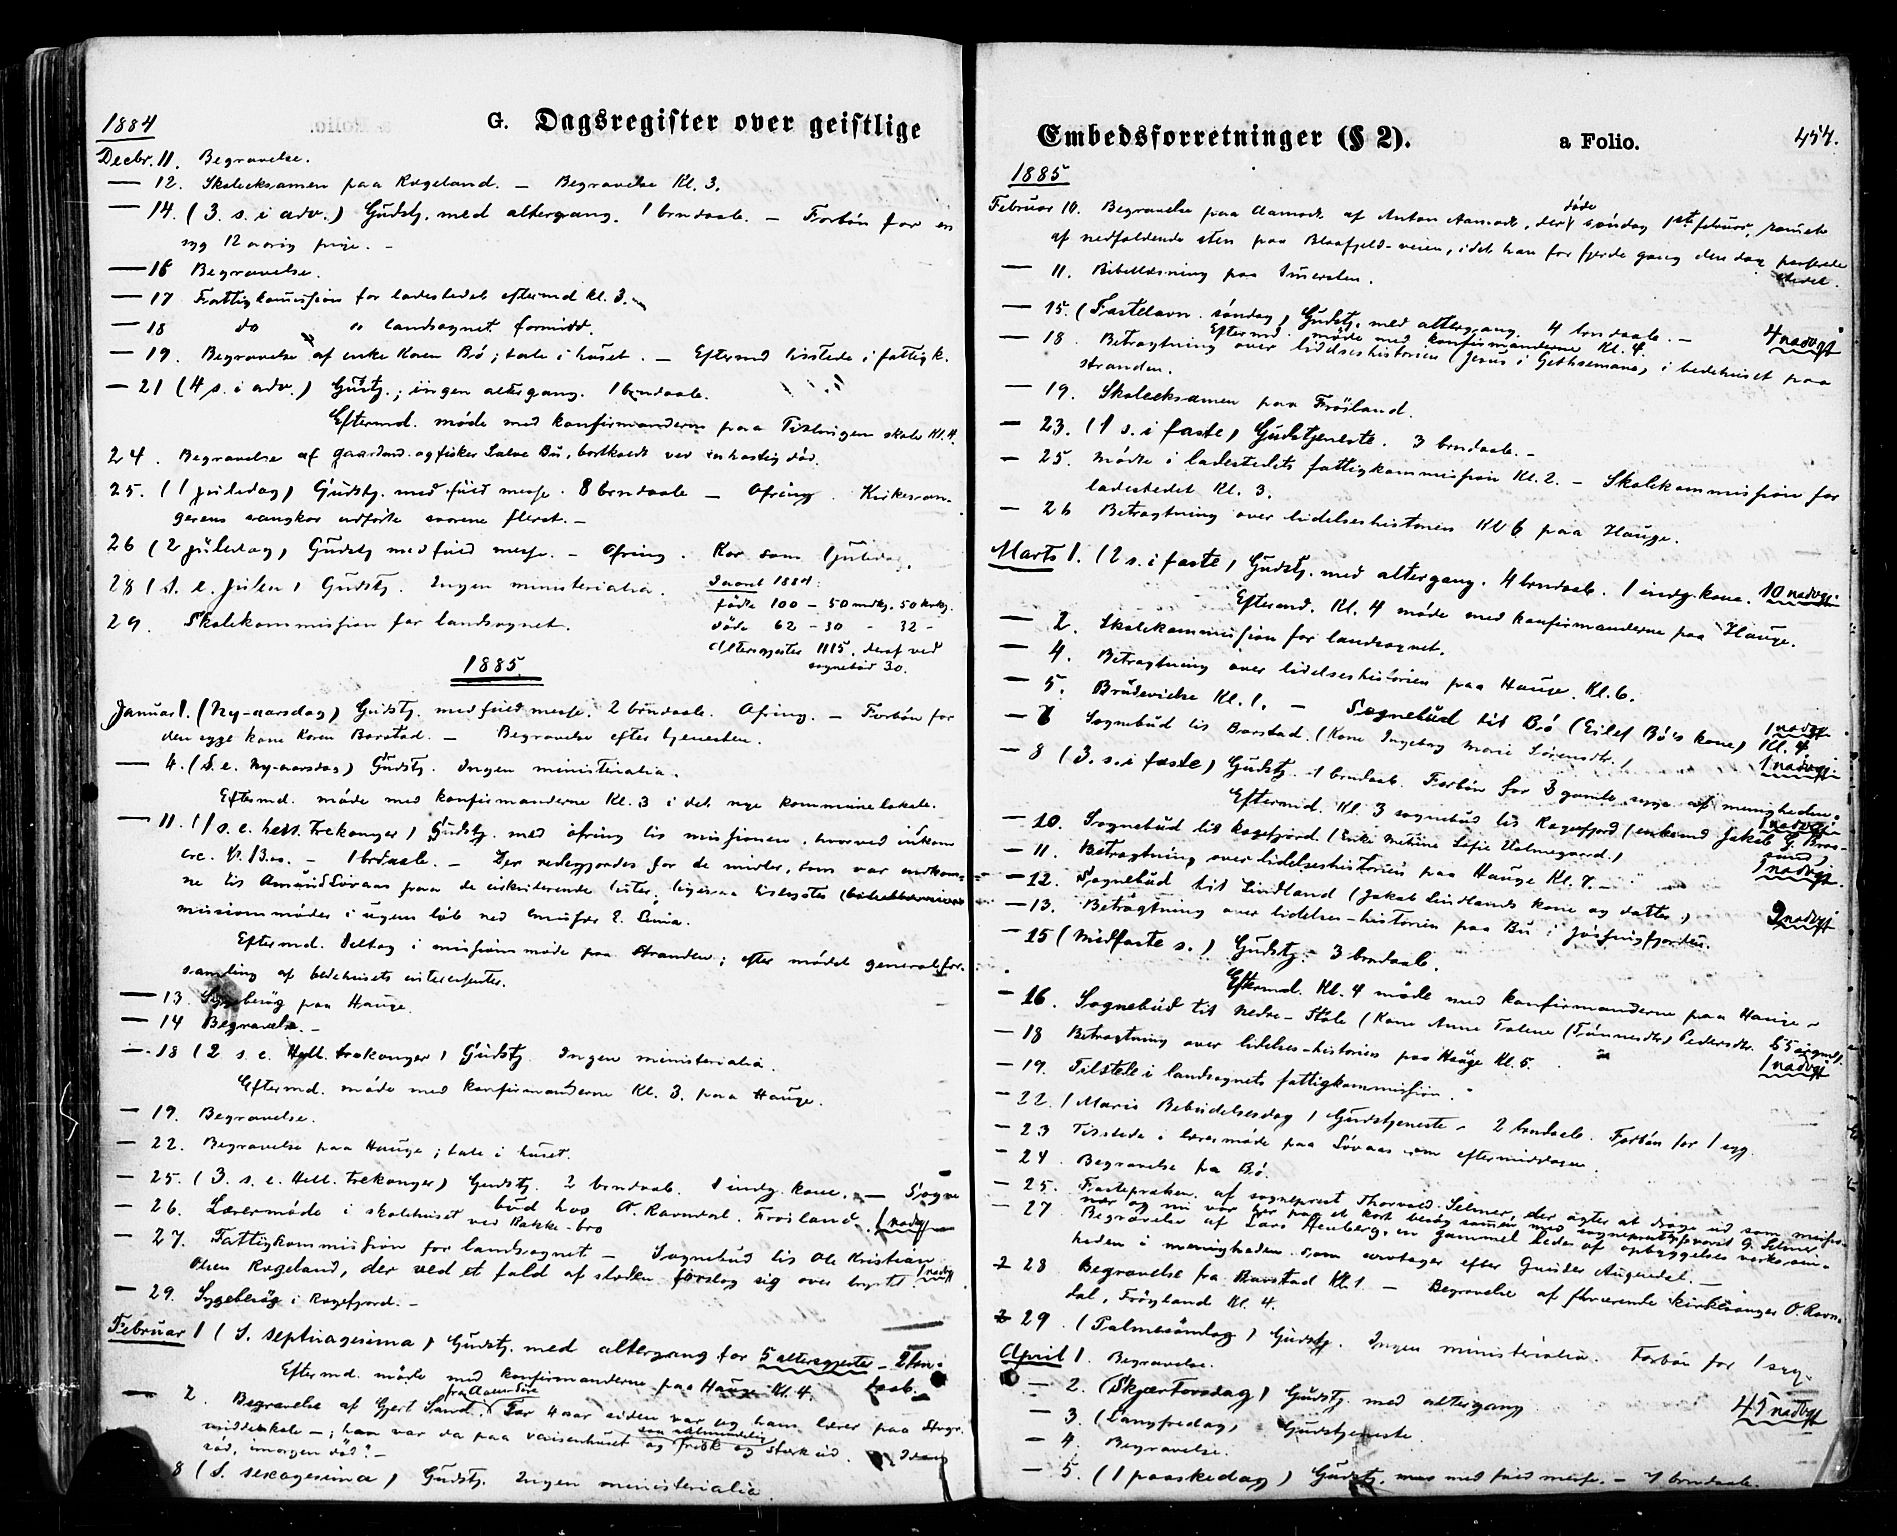 1884
G. Dagsregister over geistlige
Decbr. 11. Begravelse.
— 12. Skoleeksamen paa Rægeland. — Begravelse Kl. 3.
— 14. (3. s. i adv.) Gudstj. med altergang. 1 brndaab. — Forbøn for en
syg 12 aarig pige. —
— 16 Begravelse.
— 17 Fattigkommission for ladestedet efterm. Kl. 3.
— 18 do " landsognet formidd.
— 19. Begravelse af enke Karen Bø; tale i huset. — Eftermd tilstede i fattigk.
— 21 (4 s. i adv.) Gudstj.; ingen altergang. 1 brndaab.
Eftermd. møde med konfirmanderne paa skole Kl. 4.
24. Begravelse af gaardmd. og fisker Salve Bu, bortkaldt ved en hastig død.
25. (1 juledag) Gudstj. med fuld messe. 8 brndaab — Ofring. Kirkesan-
gerens sangkor udførte svarene fleret. —
26 (2 juledag) Gudstj med fuld messe. — Ofring. Kor som 1 juledag.
28 (S. e. julen) Gudstj. Ingen ministerialia.
29. Skolekommission for landsognet.
I aaret 1884:
fødte 100 — 50 mdkj. 50 kvkj.
døde 62 — 30 — 32 —
Altergjester 1115, deraf ved
sognebud 30.
1885.
Januar 1. (Ny-aarsdag) Gudstj. med fuld messe. 2 brndaab. Ofring. — Forbøn for
den syge kone Karen Barstad. — Begravelse efter tjenesten.
— 4. (S. e. Ny-aarsdag) Gudstj. Ingen ministerialia.
Eftermd. møde med konfirmanderne Kl. 3 i det nye kommunelokale.
— 11. (1 s. e. hell. trekonger) Gudstj. med ofring til missionen, hvorved indkom
kr. 13.00. — 1 brdaab. — Der redegjordes for de midler, som var indkom-
ne til Amund Løvaas paa de cirkulerende lister, ligesaa
missionsmøder i ugens løb ved emissær E. Senia.
Eftermd. Deltog i missionsmøde paa Stranden; efter mødet generalfor-
samling af bedehusets interessenter.
— 13. Sygebesøg paa Hauge.
— 14 Begravelse. —
— 18 (2 s. e. Hell. trekonger) Gudstj. Ingen ministerialia.
Eftermd. møde med konfirmanderne Kl. 3. paa Hauge.
— 19. Begravelse.
— 22. Begravelse paa Hauge; tale i huset.
— 25. (3. s. e. Hell. trekonger) Gudstj. 2 brndaab. 1 indg. kone. — Sogne
bud hos O. Ravndal. Frøiland. 1 nadvg
— 26. Lærermøde i skolehuset ved Bakke-bro
— 27. Fattigkommission for landsognet — Sognebud til Ole Kristian
Olsen Rægeland, der ved et fald af stolen forslog sig over brystet 1 nadvg.
— 29. Sygebesøg i Rægefjord. —
Februar 1 (S. septuagesima) Gudstj. med altergang for 5 altergjester — 2 brn-
daab.
Eftermd. møde med konfirmanderne paa Hauge Kl. 4.
— 2. Begravelse af Gjert Sand. For 4 aar siden var og han lærer paa
middskole —; han var da paa vaisenhuset og frisk og stærk ud. „Idag
rød, imorgen død". —
8 (S. sexagesima) Gudstj. Ingen ministerialia.
Embedsforretninger (§ 2). a Folio. 454.
1885
Februar 10. Begravelse paa Aamodt af Anton Aamodt, der døde søndag 1ste februar, ramt
af nedfaldende sten paa Blaafjeld-veien, idet han for fjerde gang den dag passerede
stedet.
— 11. Bibellæsning paa
— 15. (Fastelavn. søndag) Gudstj. med altergang. 4 brndaab. — 4 nadvgj
Eftermd. møde med konfirmanderne Kl. 4.
— 18. Betragtning over lidelseshistorien (Jesus i Gethsemane) i bedehuset paa
stranden.
— 19. Skoleeksamen paa Frøiland.
— 23. (1 s. i faste) Gudstjeneste. 3 brndaab. —
— 25. Mødte i ladestedets fattigkommission Kl. 2. — Skolekommission for
ladestedet Kl. 3.
— 26 Betragtning over lidelseshistorien Kl 6 paa Hauge.
Marts 1. (2 s. i faste) Gudstj. med altergang. 4 brndaab. 1 indg. kone. 10 nadvgj.
Eftermd. Kl. 4 møde med konfirmanderne paa Hauge.
— 2. Skolekommission for landsognet.
— 4. Betragtning over lidelseshistorien paa Hauge. Kl. 6.
— 5. Brudevielse Kl. 1. — Sognebud til Bø (Eilef Bø's kone) Kl. 4. 1 nadvgj.
— 7 Sognebud til Barstad. (Kone Ingeborg Marie Sørensdtr.) 1 nadvgj.
— 8 (3. s. i faste) Gudstj. 1 brndaab. Forbøn for 3 gamle syge af menigheden.
Eftermd. Kl. 3 sognebud til Rægefjord (enkemd Jakob G. Bros-
sund) 1 nadvgj.
— 10. Sognebud til Rægefjord. (Enke Metine Sofie Holmegaard.) 1 nadvgj.
— 11. Betragtning over lidelseshistorien paa Hauge Kl. 7. —
— 12. Sognebud til Lindland (Jakob Lindlands kone og datter) 2 nadvgj
— 13. Betragtning over lidelses-historien paa Bu i Jøssingfjorden.
— 15 (Midfaste s.) Gudstj. — 3 brndaab.
Eftermd. Kl. 4 møde med konfirmanderne paa Hauge —
— 16. Sognebud til Nedre-Støle (Kone Anne Tolene (Tønnesdtr) Pedersdtr. 65 aar gml. 1 nadvgj
— 18 Betragtning over lidelses-historien paa Hauge Kl. 5.
— 19. Tilstede i landsognets fattigkommission.
— 22. (Mariæ Bebudelsesdag) Gudstjeneste — 2 brndaab. Forbøn for 1 syg.
— 23 Tilstede i læsemøde paa Løvaas om eftermiddagen.
— 24. Begravelse fra Bø.
— 25. Fastepræken af sogneprest Thorvald Selmer, der agter at drage ud som missio-
nær og nu var her paa et kort besøg sammen med sogneprest provst G. Selmer.
— 27 Begravelse af Lars Auenberg, en gammel leder af opbyggelses virksom-
heden i menigheden som arvtager efter Gunder Augendal. —
— 28 Begravelse fra Barstad Kl. 1 — Begravelse af fhværende kirkesanger O. Ravn-
dal, Frøyland Kl. 4.
— 29. (Palmesøndag) Gudstj. Ingen ministerialia. Forbøn for 1 syg.
April 1. Begravelse.
— 2. (Skjærtorsdag) Gudstj. med altergang 45 nadvgj
— 3. (Langfredag) Gudstjeneste.
— 4. Begravelse.
— 5. (1 paaskedag) Gudstj. med fuld messe. — 4 brndaab.